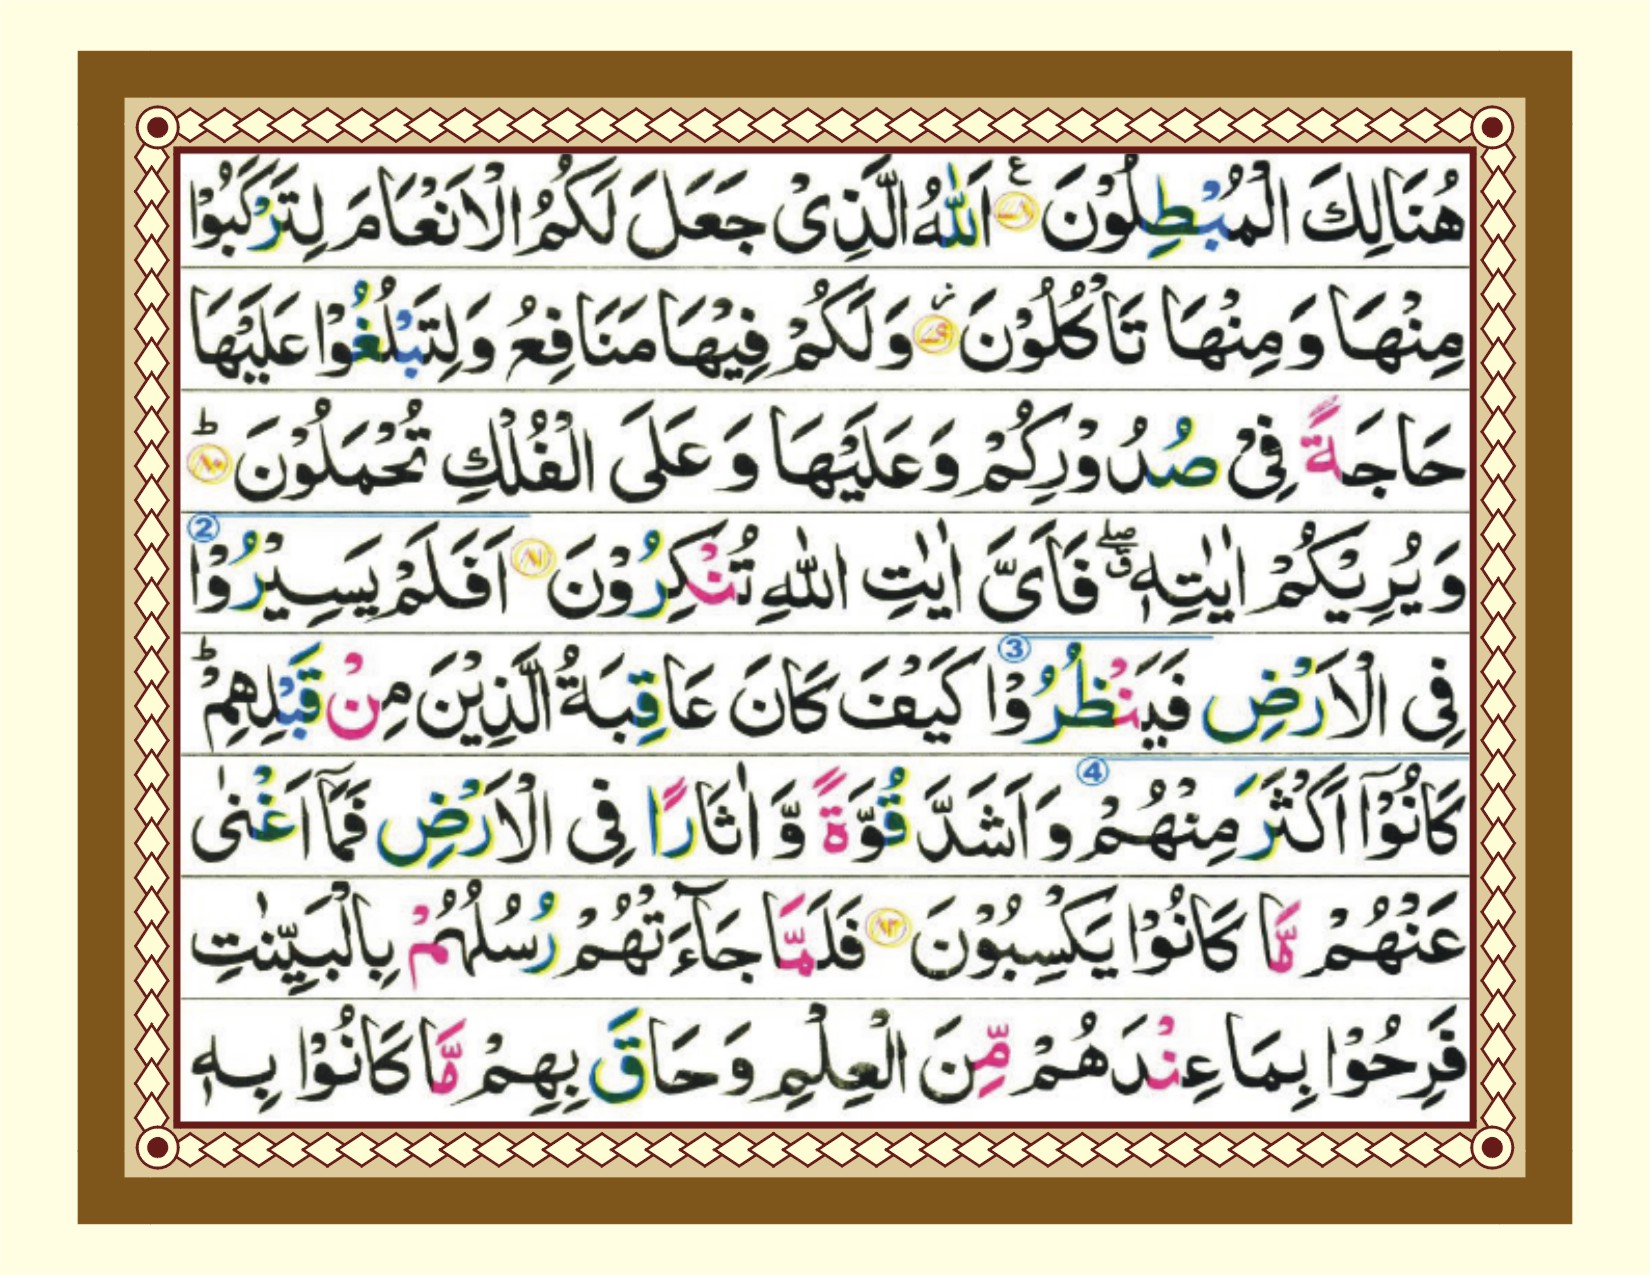 هُنَالِكَ الْمُبْطِلُوْنَ ۝۷۸ ع اَللّٰهُ الَّذِیْ جَعَلَ لَكُمُ الْاَنْعَامَ لِتَرْكَبُوْا
مِنْهَا وَمِنْهَا تَاْكُلُوْنَ ۝۷۹ ز وَلَكُمْ فِیْهَا مَنَافِعُ وَلِتَبْلُغُوْا عَلَیْهَا
حَاجَةً فِیْ صُدُوْرِكُمْ وَعَلَیْهَا وَ عَلَی الْفُلْكِ تُحْمَلُوْنَ ۝۸۰ ط
وَیُرِیْكُمْ اٰیٰتِهٖ ۖق فَاَیَّ اٰیٰتِ اللّٰهِ تُنْكِرُوْنَ ۝۸۱ اَفَلَمْ یَسِیْرُوْا 2
فِی الْاَرْضِ فَیَنْظُرُوْا 3 كَیْفَ كَانَ عَاقِبَةُ الَّذِیْنَ مِنْ قَبْلِهِمْ ؕ
كَانُوْۤا اَكْثَرَ مِنْهُمْ 4 وَ اَشَدَّ قُوَّةً وَّ اٰثَارًا فِی الْاَرْضِ فَمَاۤ اَغْنٰی
عَنْهُمْ مَّا كَانُوْا یَكْسِبُوْنَ ۝۸۲ فَلَمَّا جَآءَتْهُمْ رُسُلُهُمْ بِالْبَیِّنٰتِ
فَرِحُوْا بِمَا عِنْدَهُمْ مِّنَ الْعِلْمِ وَحَاقَ بِهِمْ مَّا كَانُوْا بِهٖ